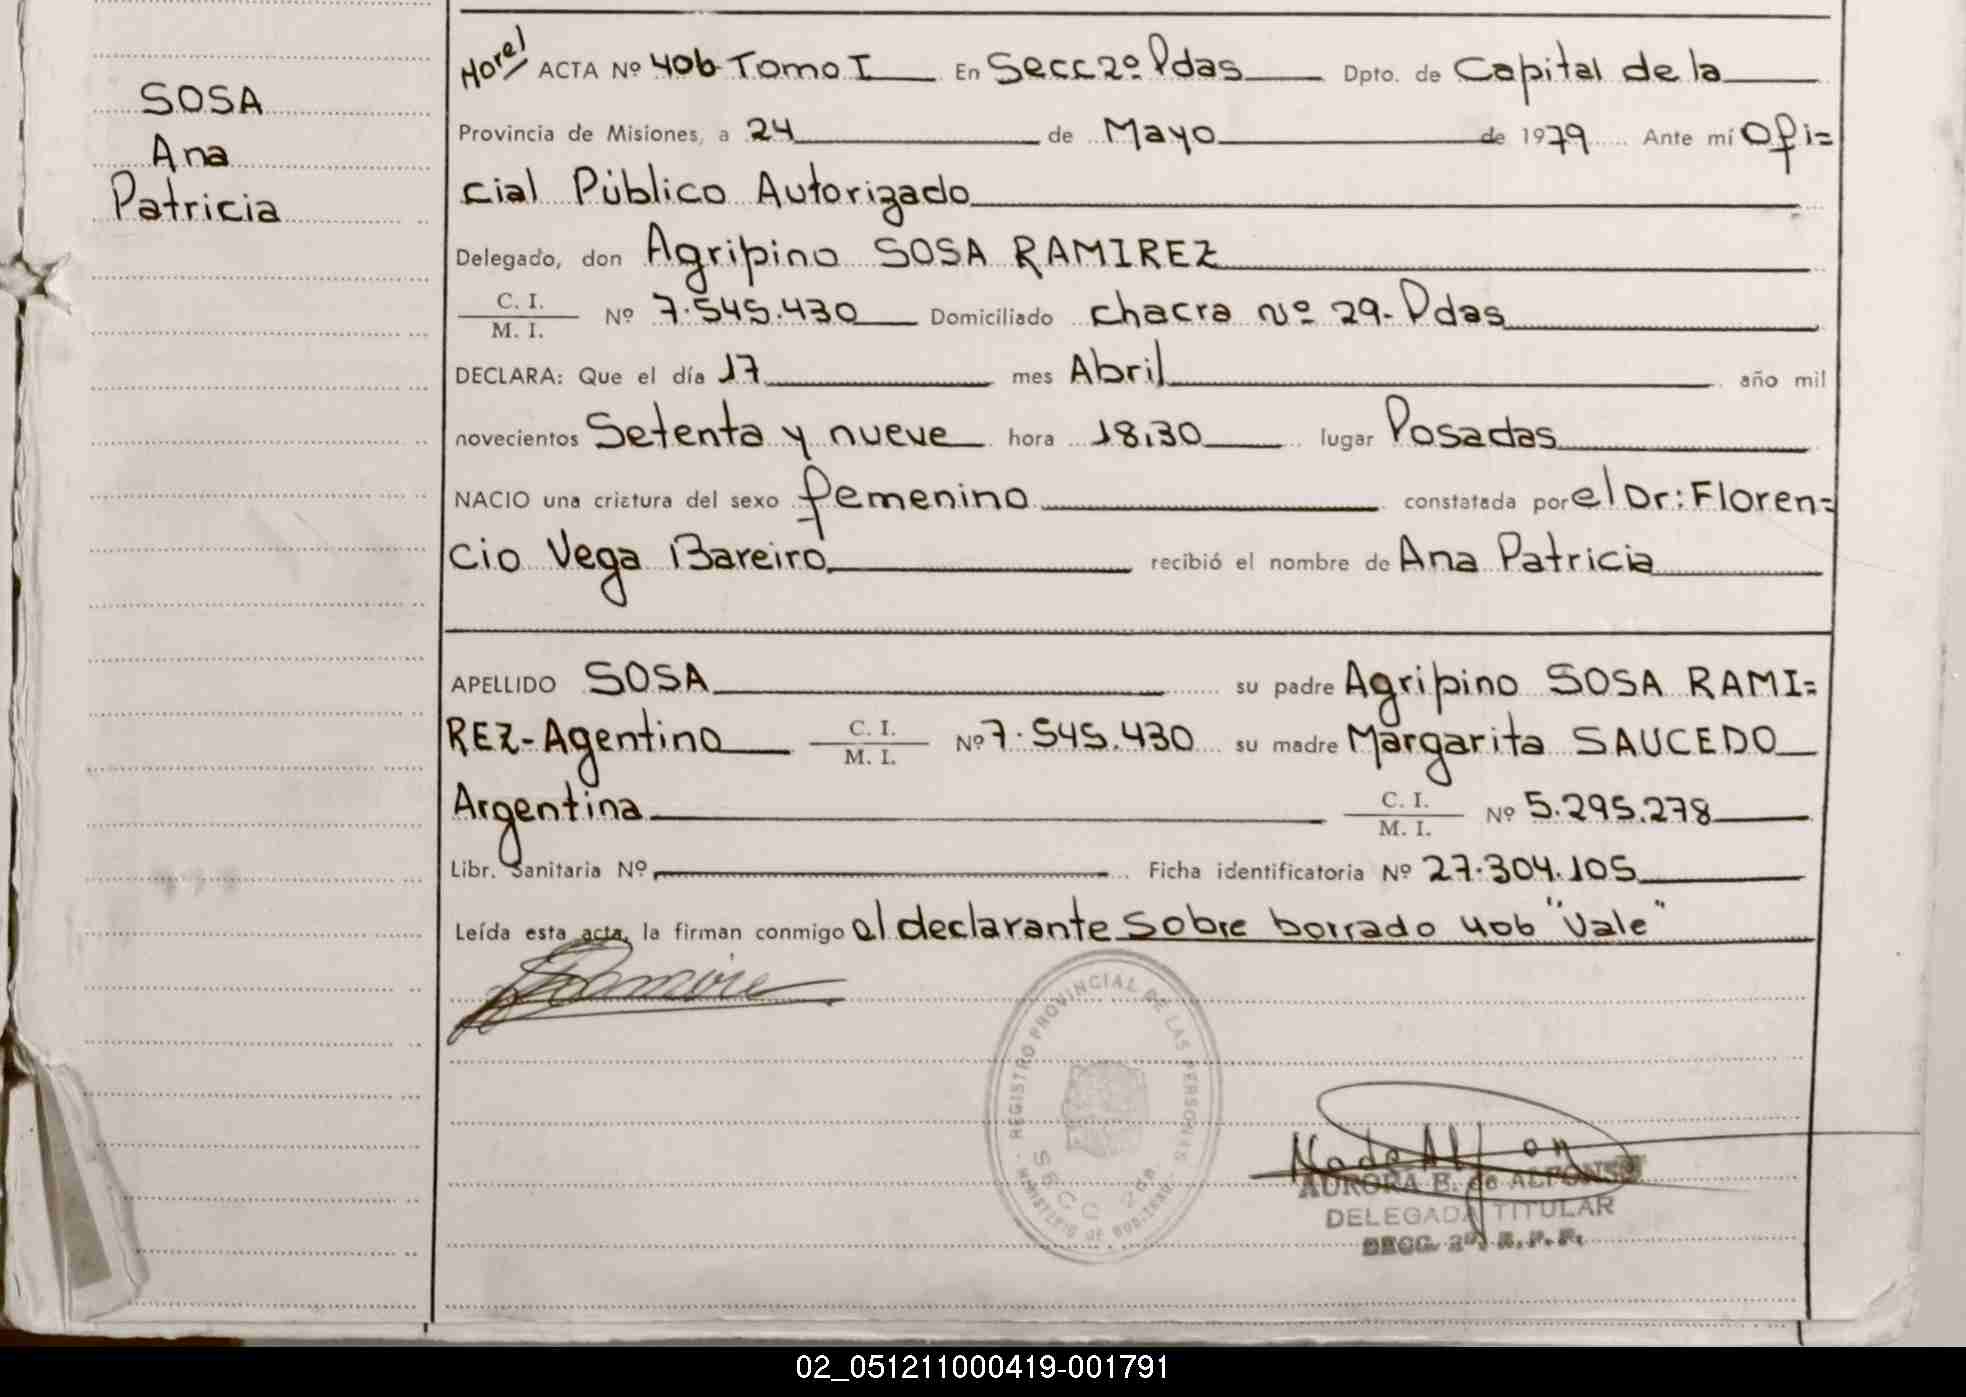 SOSA
Ana
Patricia
ACTA Nº 406 Tomo I En Secc 2º Pdas Dpto. de Capital de la
Provincia de Misiones, a 24 de Mayo de 1979 Ante mí Ofi=
cial Público Autorizado
Delegado, don Agripino SOSA RAMIREZ
C. I.
M. I. Nº 7.545.430 Domiciliado chacra Nº 29- Pdas
DECLARA: Que el día 17 mes Abril año mil
novecientos Setenta y nueve hora 18,30 lugar Posadas
NACIO una criatura del sexo femenino constatada por el Dr: Floren=
cio Vega Bareiro recibió el nombre de Ana Patricia
APELLIDO SOSA su padre Agripino SOSA RAMI=
REZ-Agentino C. I. M. I. Nº 7.545.430 su madre Margarita SAUCEDO
Argentina C. I. M. I. Nº 5.295.278
Libr. Sanitaria Nº Ficha identificatoria Nº 27.304.105
Leída esta acta, la firman conmigo el declarante Sobre borrado 406 "Vale"
REGISTRO PROVINCIAL DE LAS PERSONAS
SECC 2da
MINISTERIO DE GOBIERNO
AURORA B. de ALFONSO
DELEGADA TITULAR
SECC. 2ª R. P. P.
02_051211000419-001791